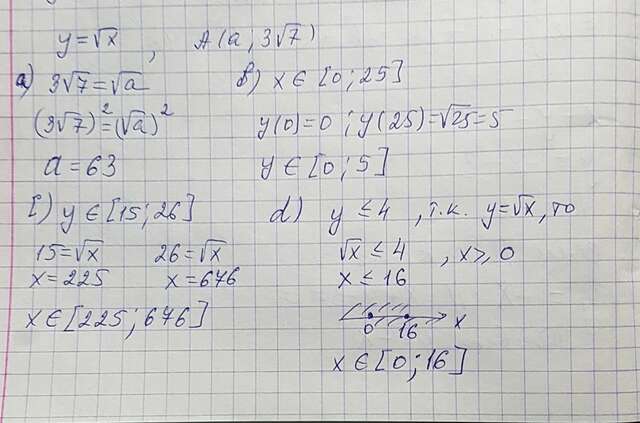 y=√x , A(a; 3√7)
a) 3√7=√a
(3√7)²=(√a)²
a=63
b) x∈[0;25]
y(0)=0; y(25)=√25=5
y∈[0;5]
c) y∈[15;26]
15=√x 26=√x
x=225 x=676
x∈[225;676]
d) y≤4, т.к. y=√x, то
√x≤4, x≥0
x≤16
0 16 x
x∈[0;16]